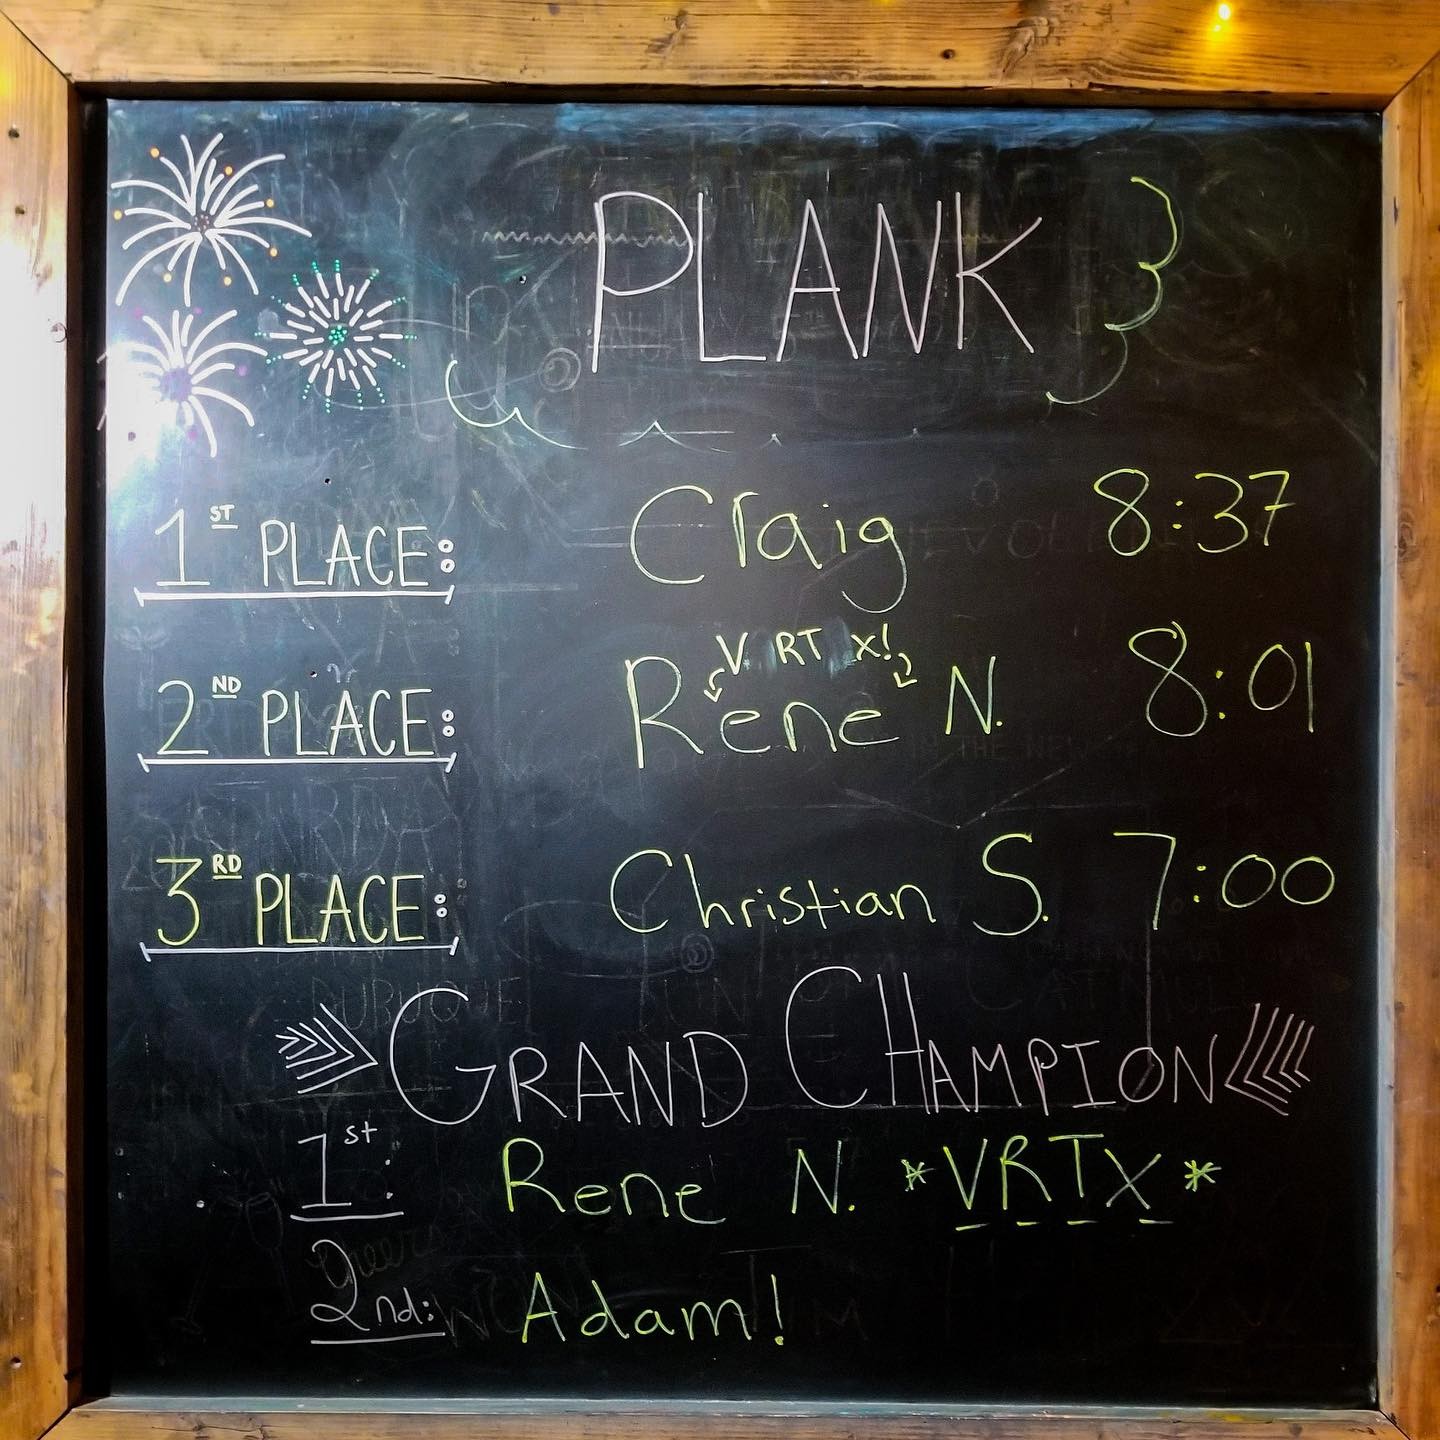 PLANK
1ST PLACE: Craig 8:37
V RT X!
2ND PLACE: Rene N. 8:01
3RD PLACE: Christian S. 7:00
GRAND CHAMPION
1st: Rene N. *VRTX*
2nd: Adam!